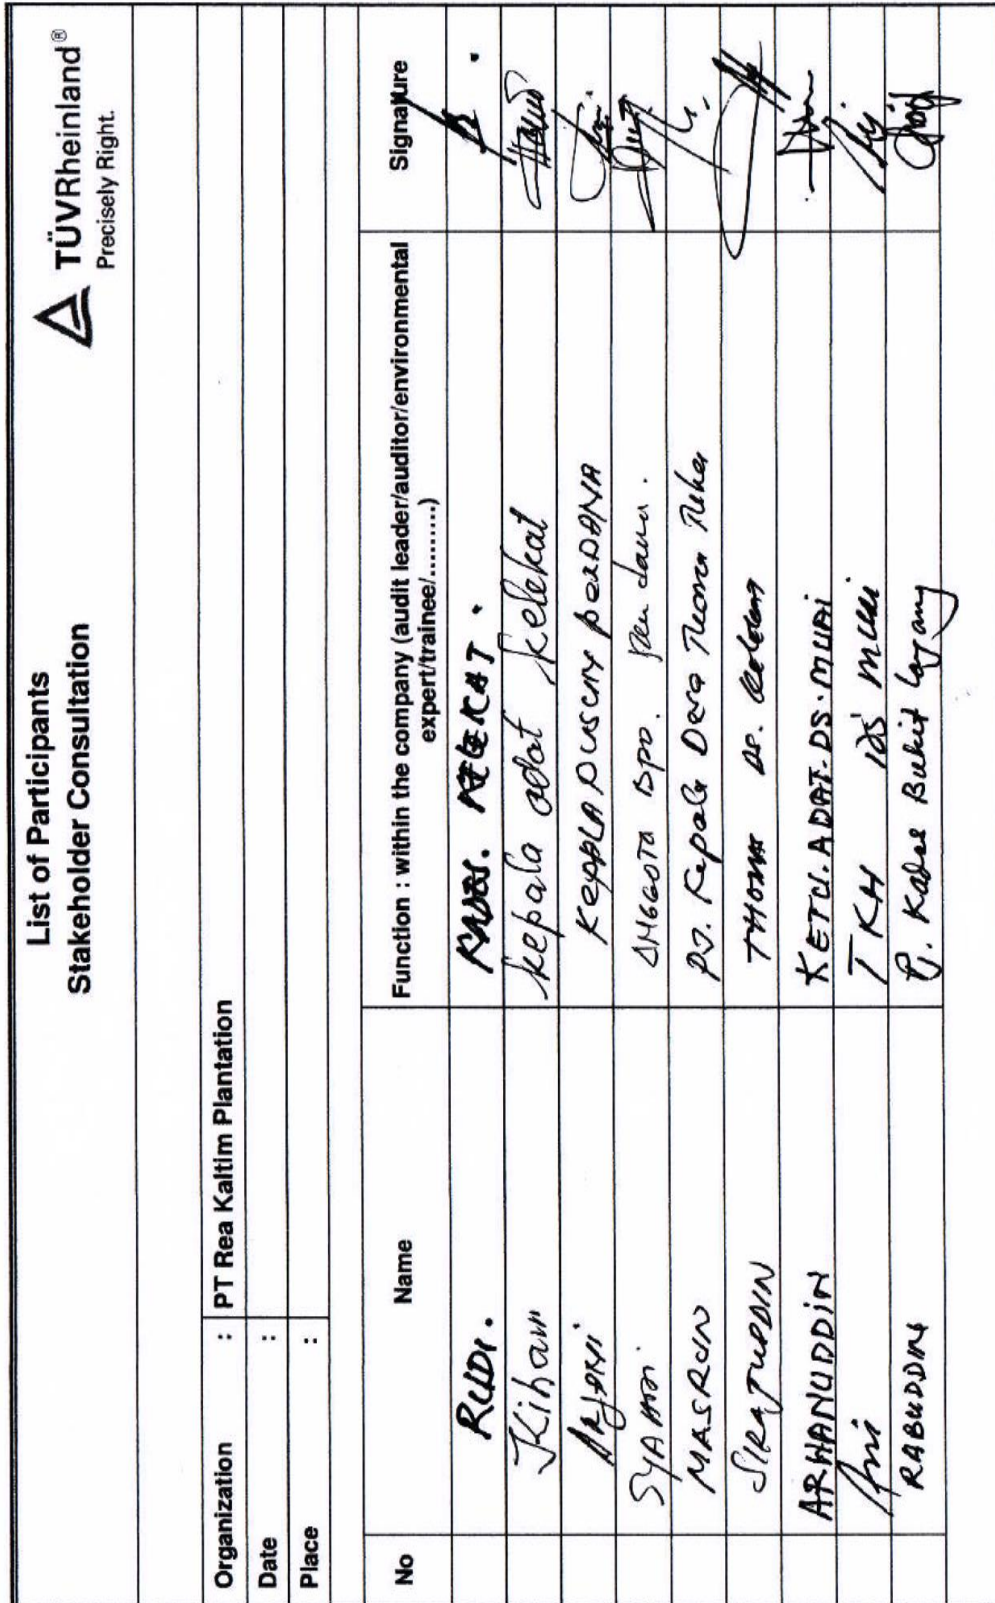 List of Participants
Stakeholder Consultation
TÜVRheinland®
Precisely Right.
Organization : PT Rea Kaltim Plantation
Date :
Place :
No Name Function : within the company (audit leader/auditor/environmental expert/trainee/........) Signature
RUDI. KADES. KELEKAT.
Kiham kepala adat kelekat
ARJANI KEPALA DUSUN PERDANA
SYAHRI ANGGOTA BPD.
MASRUN PJ. Kepala Desa
SIRAJUDDIN
ARHANUDDIN KETU. ADAT. DS. MUAI
TKH
RABUDDIN Pj. Kades Bukit Layang